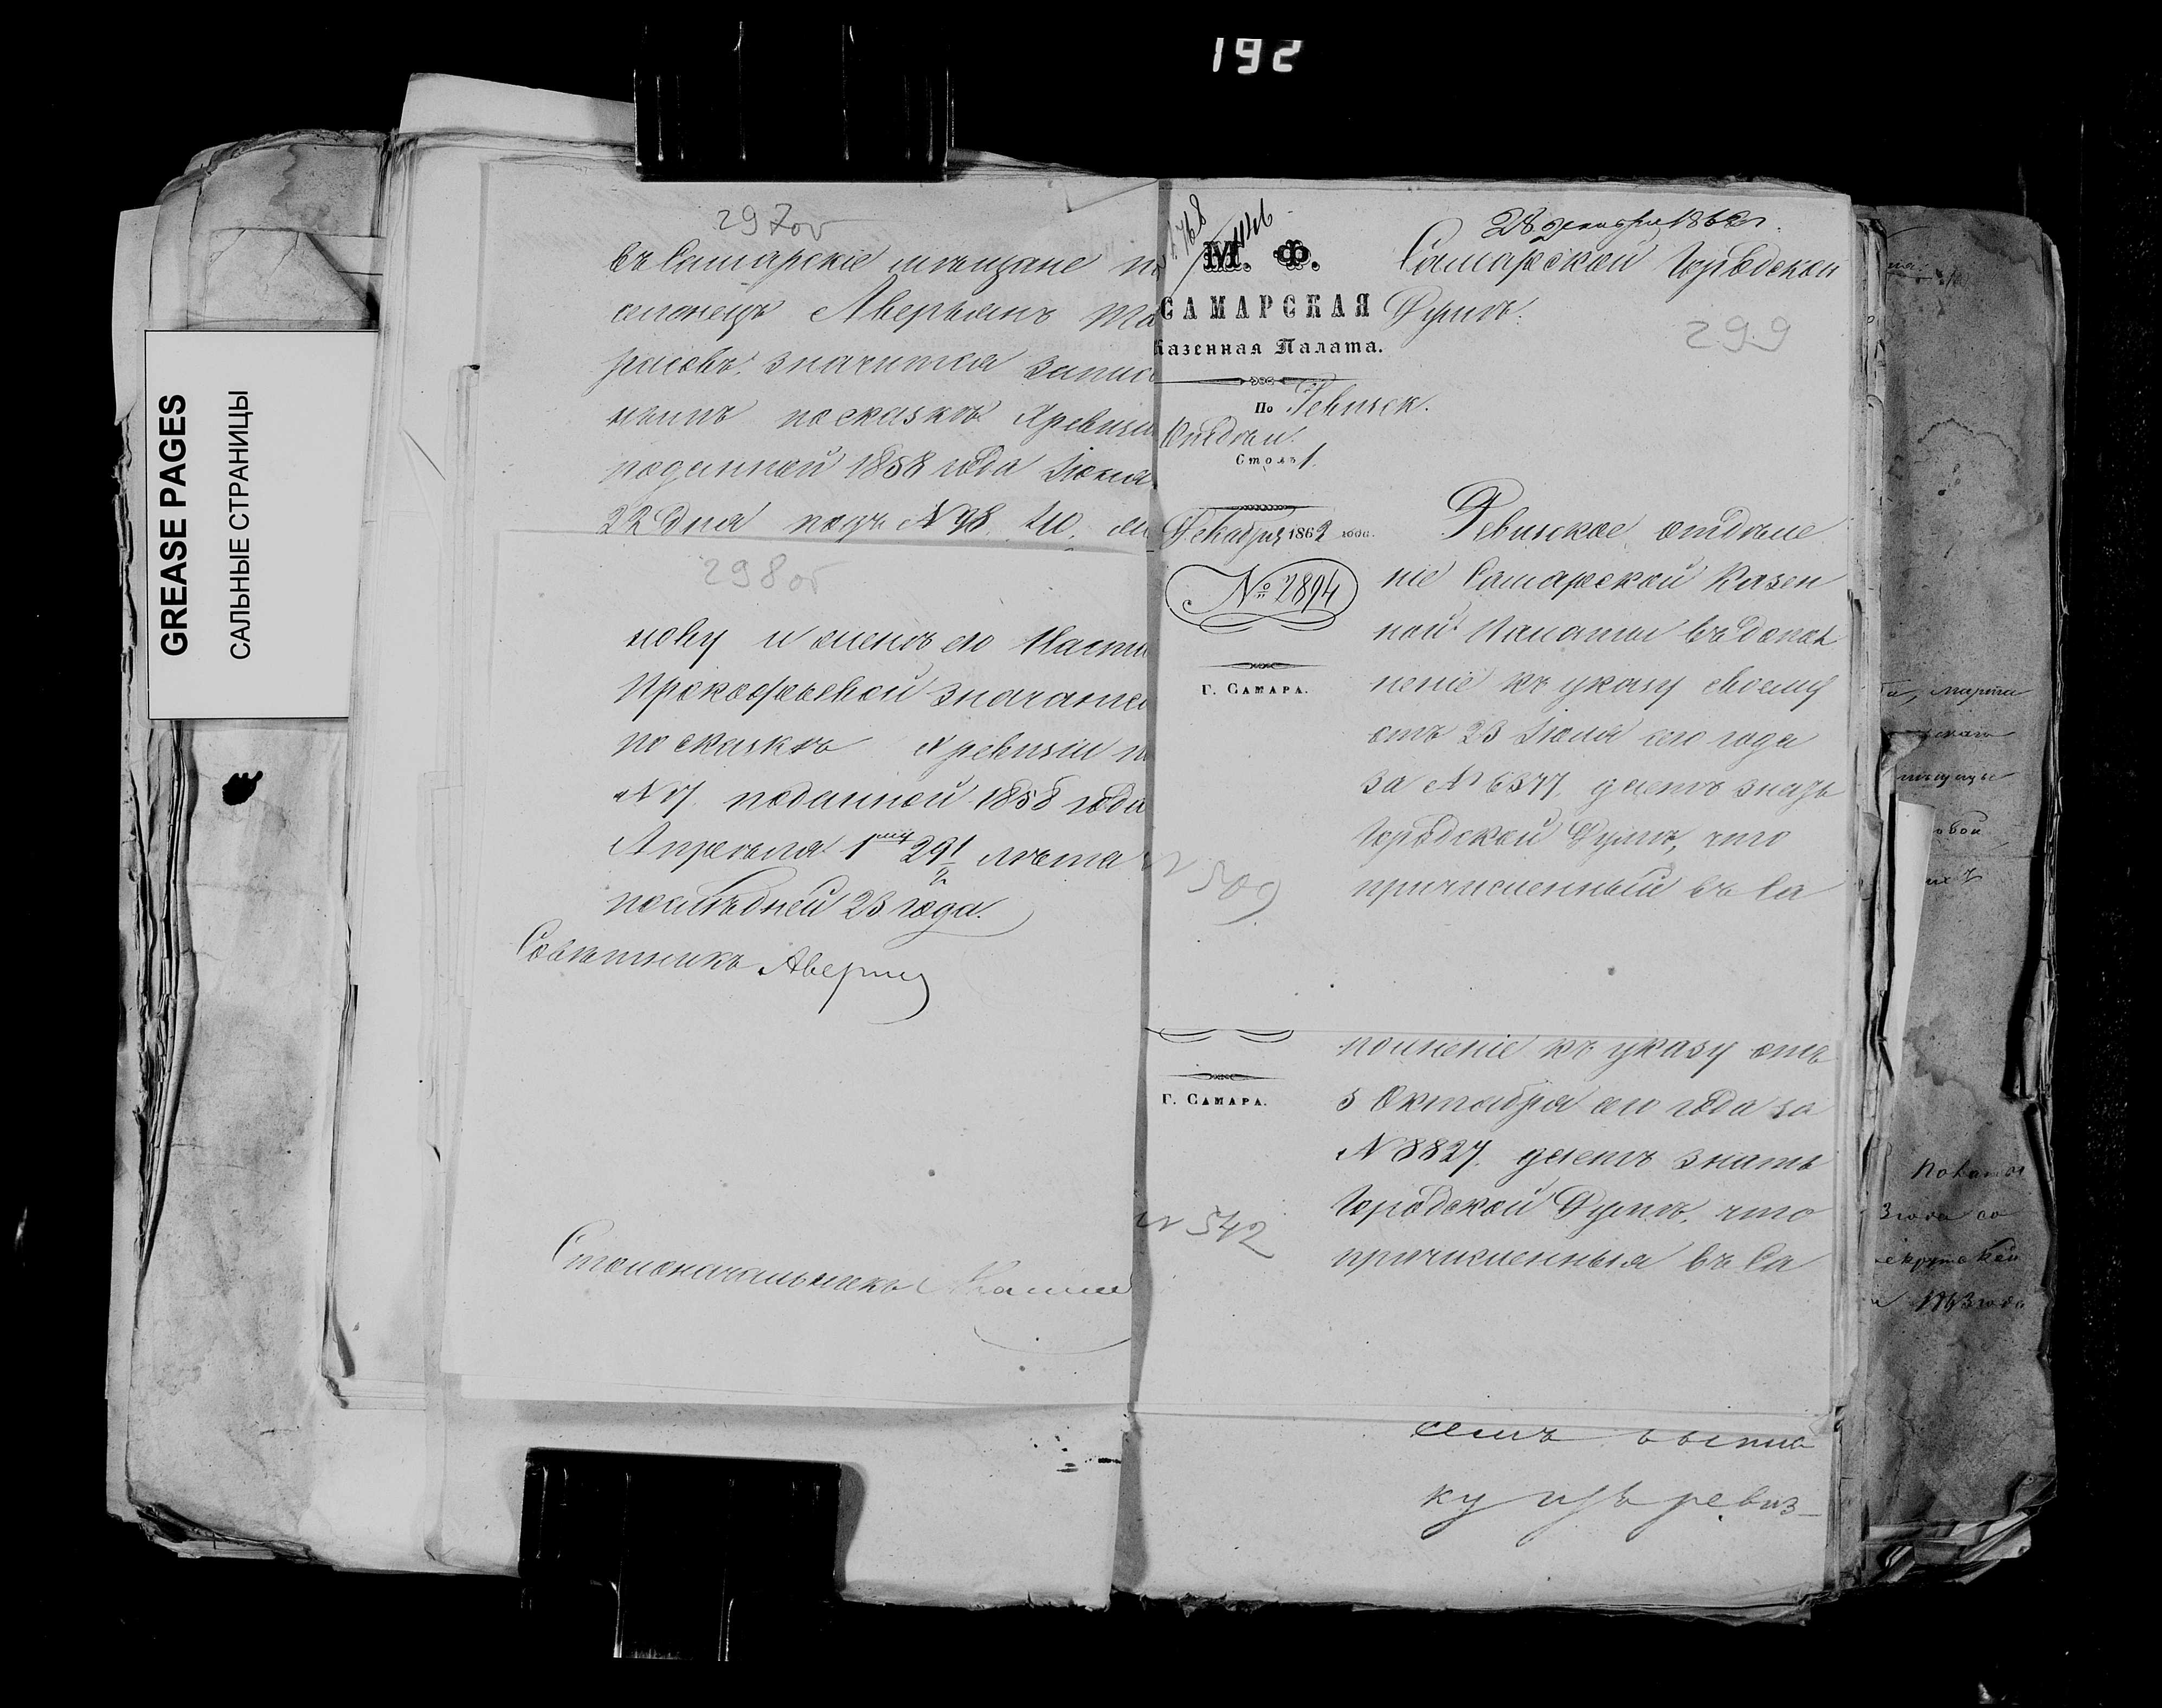 192
GREASE PAGES
САЛЬНЫЕ СТРАНИЦЫ
297об
въ Самарскіе мѣщане по
селенецъ Аверьянъ Ма
рковъ значится записа
нымъ по сказкѣ X ревизіи
поданной 1858 года Іюня
22 дня подъ № 98. 40. лѣ
298об
нову и женѣ его Наста
Прокофьевой значатся
по сказкѣ X ревизіи п
№ 17. поданной 1858 года
Апрѣля 1му 29 1/2 лѣта
послѣдней 23 года.
Совѣтникъ Аверин
Столоначальникъ
М. Ф.
САМАРСКАЯ
Казенная Палата.
По Ревизск.
Отдѣлен.
Столъ 1.
Декабря 1862 года.
№ 2894
Г. САМАРА.
№ 509
28 Декабря 1862 г.
Самарской Городской
Думѣ.
299
Ревизское отдѣле
ніе Самарской Казен
ной Палаты въ допол
неніе къ указу своему
отъ 23 Іюля сего года
за № 6377. даетъ знать
Городской Думѣ, что
причисленный въ Са
Г. САМАРА.
№ 542
полненіе къ указу отъ
5 Октября сего года за
№ 8827. даетъ знать
Городской Думѣ, что
причисленныя въ Са
ку изъ ревиз